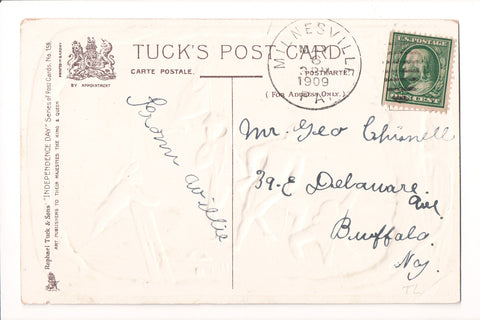 TUCK'S POST CARD
CARTE POSTALE.
POSTKARTE.
(For Address Only.)
BY APPOINTMENT
Raphael Tuck & Sons' "INDEPENDENCE DAY" Series of Post Cards, No. 159.
ART PUBLISHERS TO THEIR MAJESTIES THE KING & QUEEN
MINNESVILLE
6
1909
PA.
U.S. POSTAGE
ONE CENT
From Willis
Mr. Geo
39-E Delaware
Ave
Buffalo.
Ny.